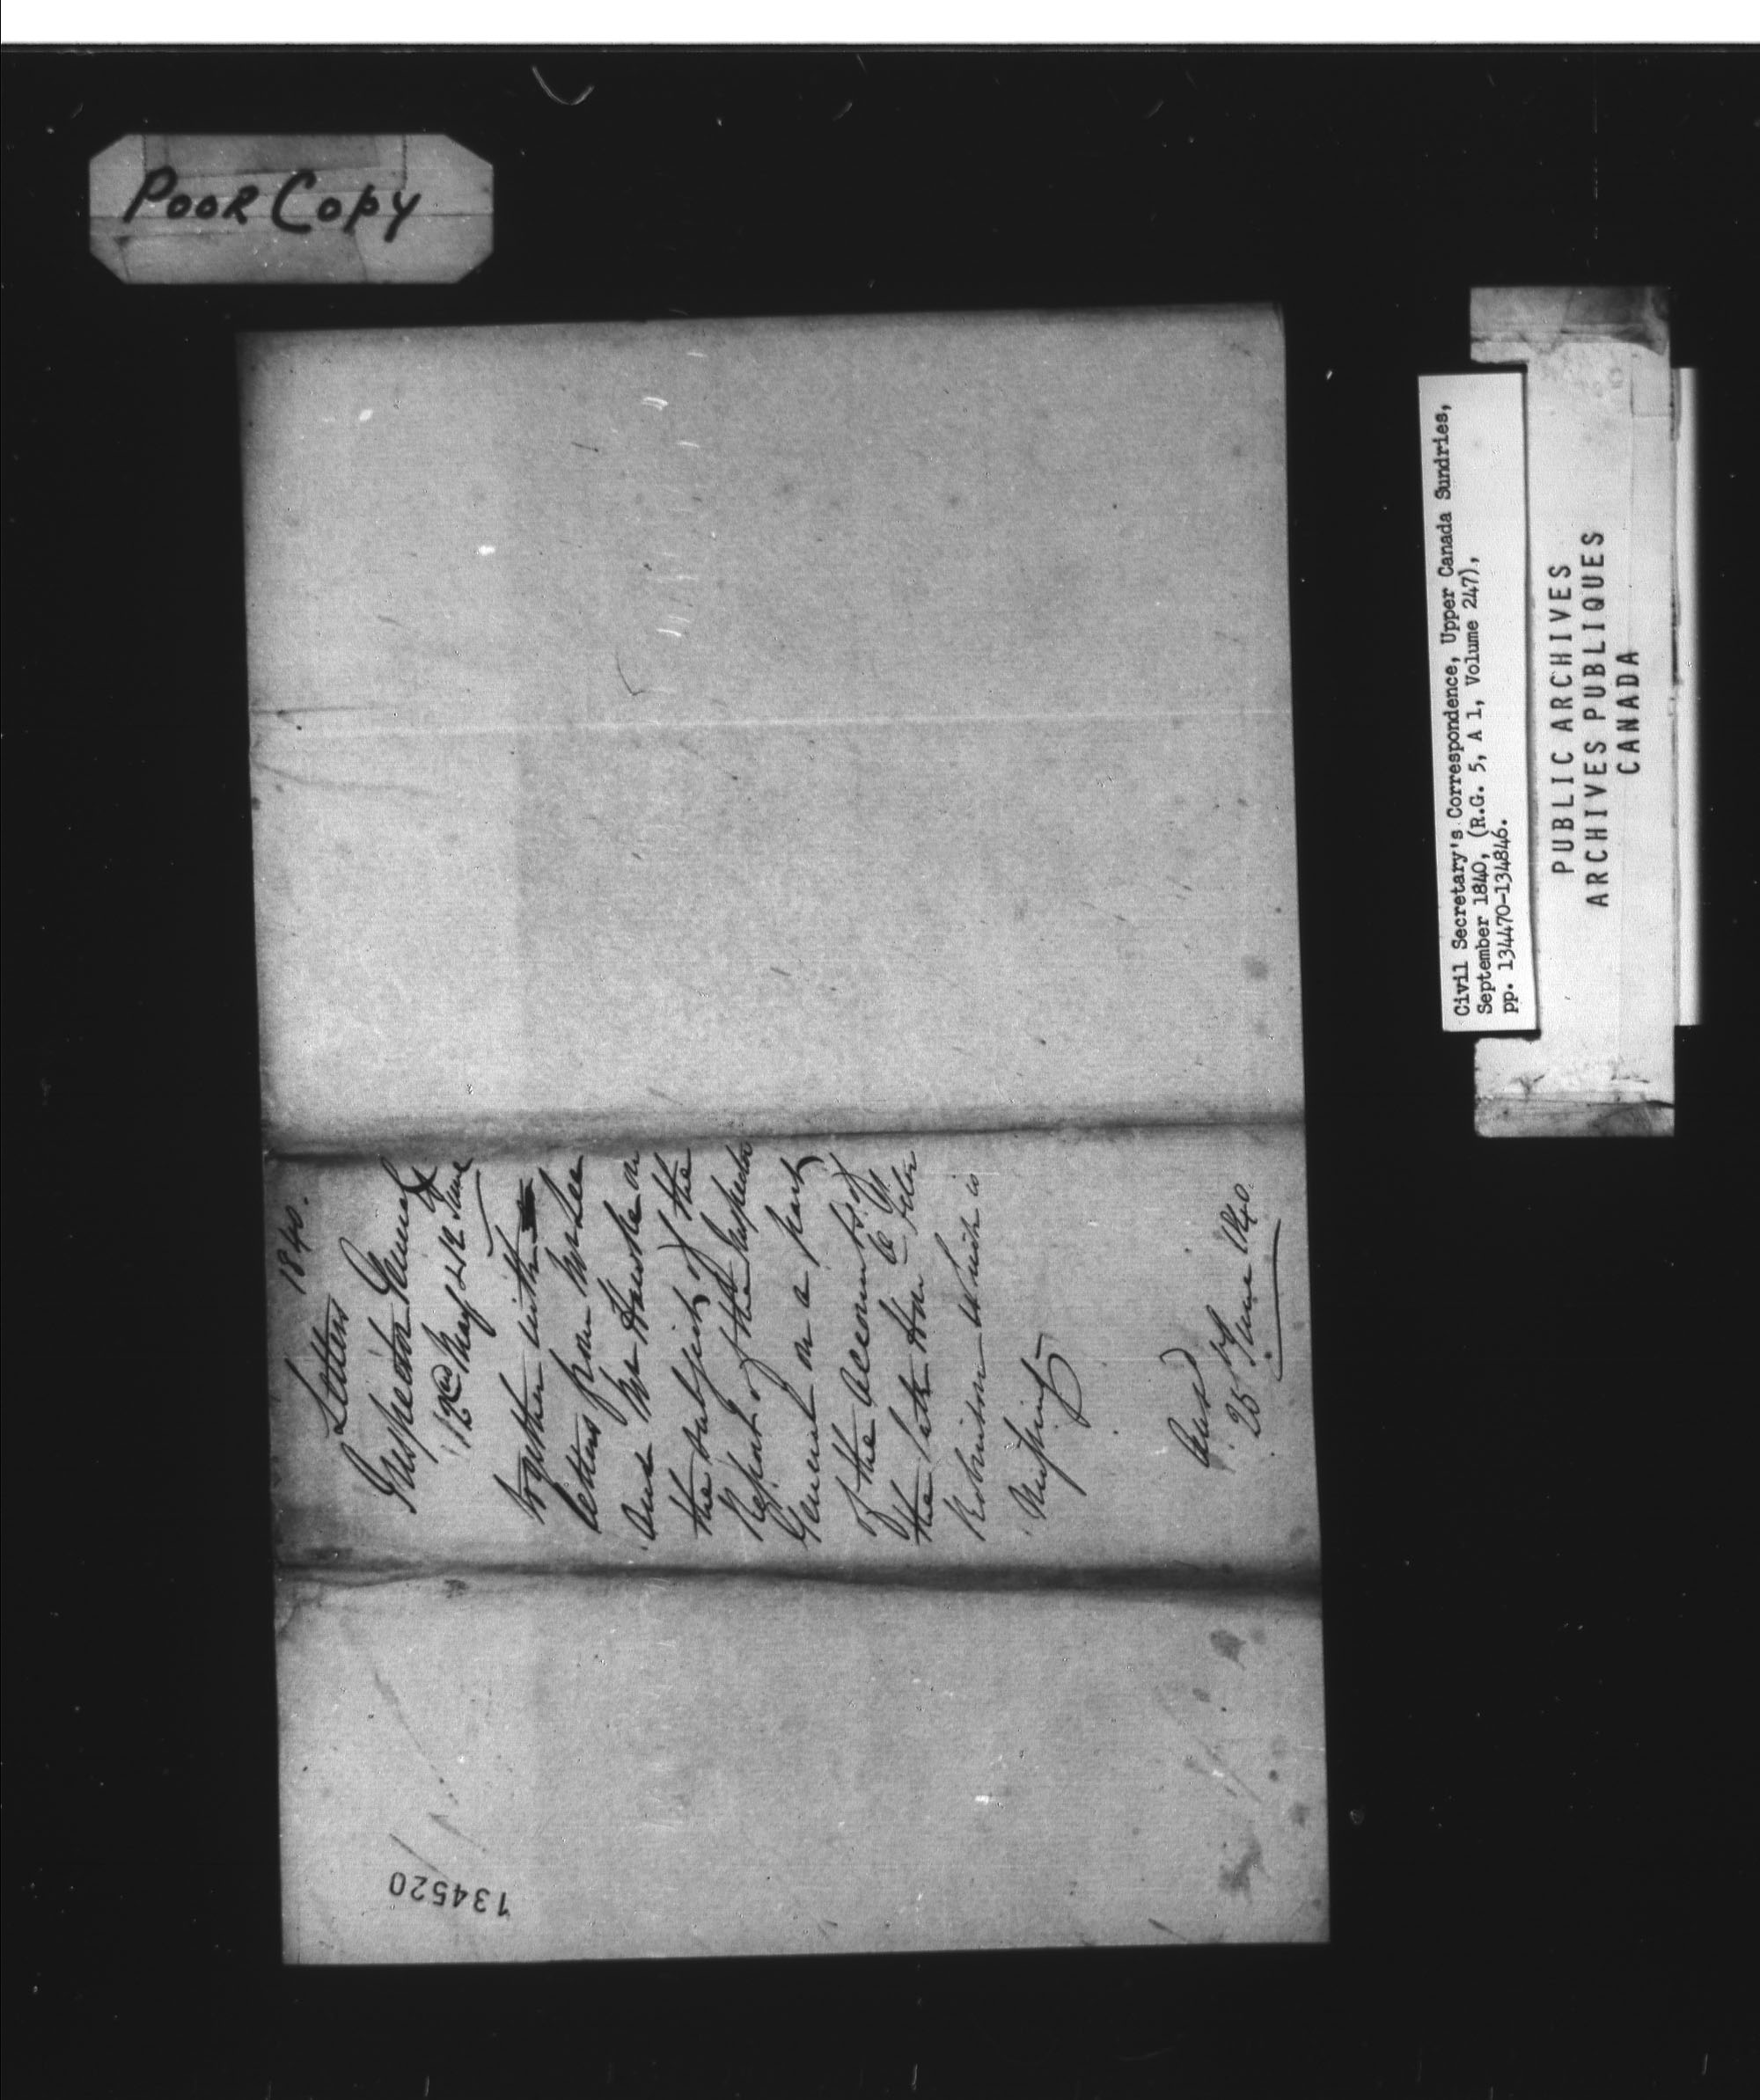 Poor Copy
1840.
Letters
Inspector General
12th May & 12 June
together with
letters from Mr Lee
and Mr Hawke on
the subject of the
Report of the Inspector
General on a part
of the Accounts of
the late Hon Peter
Robinson which is
Missing
25 June 1840.
134520
Civil Secretary's Correspondence, Upper Canada Sundries,
September 1840, (R.G. 5, A 1, Volume 247),
pp. 134470-134846.
PUBLIC ARCHIVES
ARCHIVES PUBLIQUES
CANADA